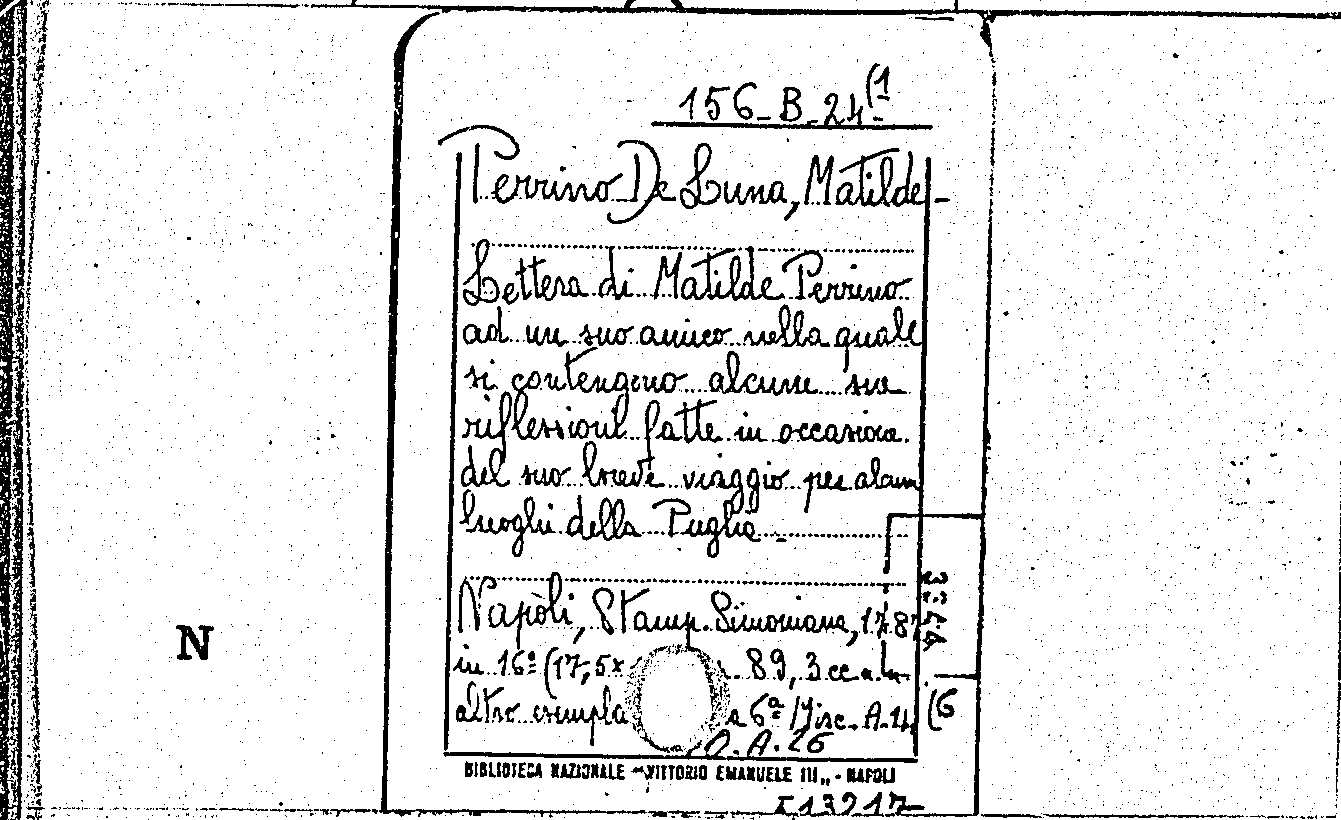 156-B-24(1
Perrino De Luna, Matilde-
Lettera di Matilde Perrino
ad un suo amico nella quale
si contengono alcune sue
riflessioni fatte in occasione
del suo breve viaggio per alcuni
luoghi della Puglia-
Napoli, Stamp. Simoniana, 1787
in 16º (17,5x 89, 3 cc
altro esempla a 6ª Misc. A.14 (6
N
BIBLIOTECA NAZIONALE "VITTORIO EMANUELE III" - NAPOLI
513217